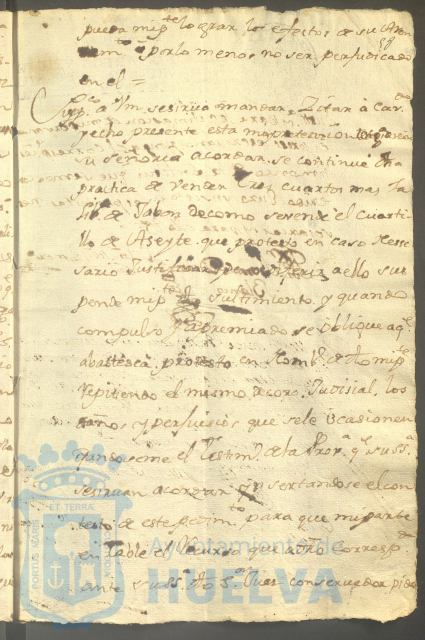 pueda mi pte lograr los efectos de su Arren
dam.to o por lo menos no ser perjudicado
en el =
Supp.co a Vm se sirva mandar Zitar a Car.do
y echo presente esta mi pretencion
su señoria acordar se continue dha
practica de vender tres quartos mas la
lib.a de Jabon de como se vende el cuarti
llo de Aseyte que protesto en caso Nesse
sario Justificar y de no diferir a ello sus
pende mi pte su cumplimiento y quando
compulso y apremiado se oblique aq.e
abastesca protesto en Nomb.e de dho mi p.te
repitiendo el mismo decoro Judisial los
daños y perjuisios que se le ocacionen
dandoseme el Testim.o de la Prov.a q.e su S.a
se sirvan acordar insertandose el con
testo de este pedim.to para que mi parte
entable el recurso que adbro Corresp.de
ante su S.a dho S.r Jues conservador pido
Ayuntamiento de
HUELVA
PORTUS MARIS
ET TERRÆ